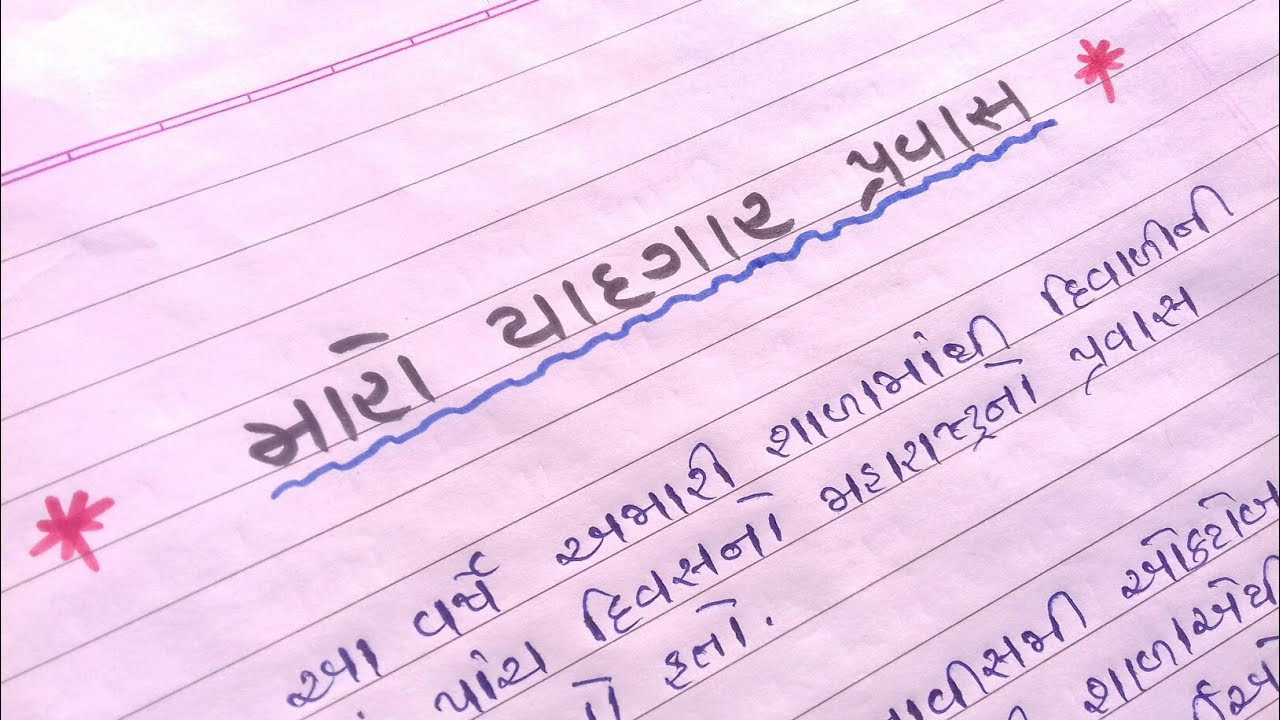 મારો યાદગાર પ્રવાસ
આ વર્ષે અમારી શાળામાંથી દિવાળીની
પાંચ દિવસનો મહારાષ્ટ્રનો પ્રવાસ
હતો.
શાળાએથી